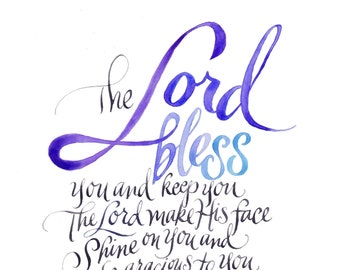 The Lord
bless
you and keep you
The Lord make His face
Shine on You and
gracious to you